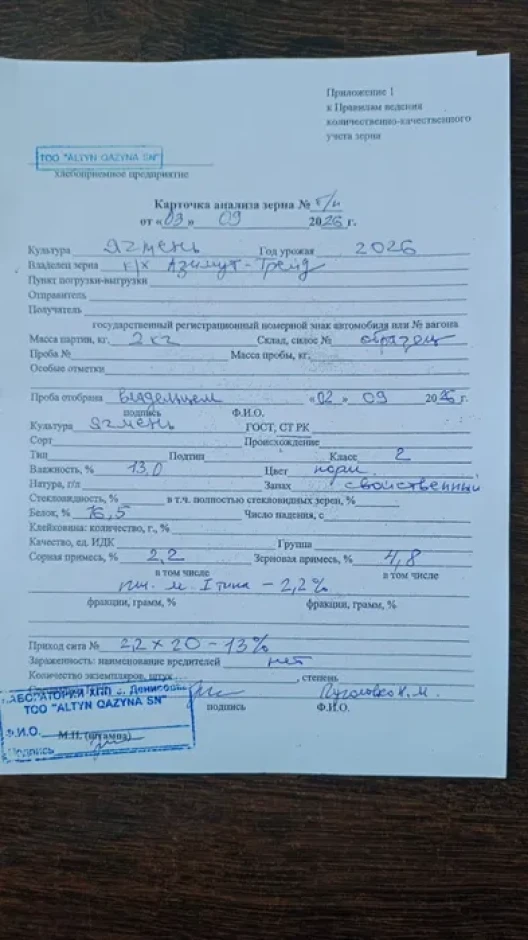 Приложение 1
к Правилам ведения
количественно-качественного
учета зерна
ТОО "ALTYN QAZYNA SN"
хлебоприемное предприятие
Карточка анализа зерна № б/н
от «03» 09 2026 г.
Культура ячмень Год урожая 2026
Владелец зерна к/х Азимут-Трейд
Пункт погрузки-выгрузки
Отправитель
Получатель
государственный регистрационный номерной знак автомобиля или № вагона
Масса партии, кг. 2 кг Склад, силос № образец
Проба № Масса пробы, кг.
Особые отметки
Проба отобрана владельцем «02» 09 2026 г.
подпись Ф.И.О.
Культура ячмень ГОСТ, СТ РК
Сорт Происхождение
Тип Подтип Класс 2
Влажность, % 13,0 Цвет норм.
Натура, г/л Запах свойственный
Стекловидность, % в т.ч. полностью стекловидных зерен, %
Белок, % 16,5 Число падения, с
Клейковина: количество, г., %
Качество, ед. ИДК Группа
Сорная примесь, % 2,2 Зерновая примесь, % 4,8
в том числе в том числе
I типа - 2,2%
фракции, грамм, % фракции, грамм, %
Приход сита № 2,2 х 20 - 13%
Зараженность: наименование вредителей нет
Количество экземпляров, штук , степень
подпись Ф.И.О.
ЛАБОРАТОРИЯ ХПП с. Денисовка
ТОО "ALTYN QAZYNA SN"
Ф.И.О. М.П. (штампа)
Подпись